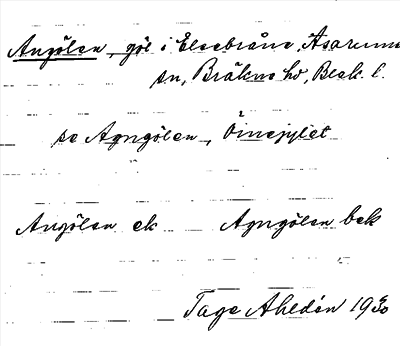 Angölen, göl i Elsebråne, Asarums
sn, Bräkne hd, Blek. l.
se Agngölen,
Angölen ek Agngölen bek
Tage Ahldén 1930